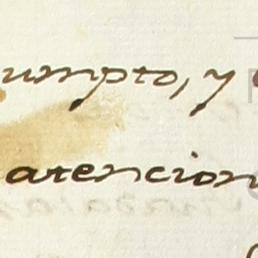 sumpto, y
atencion